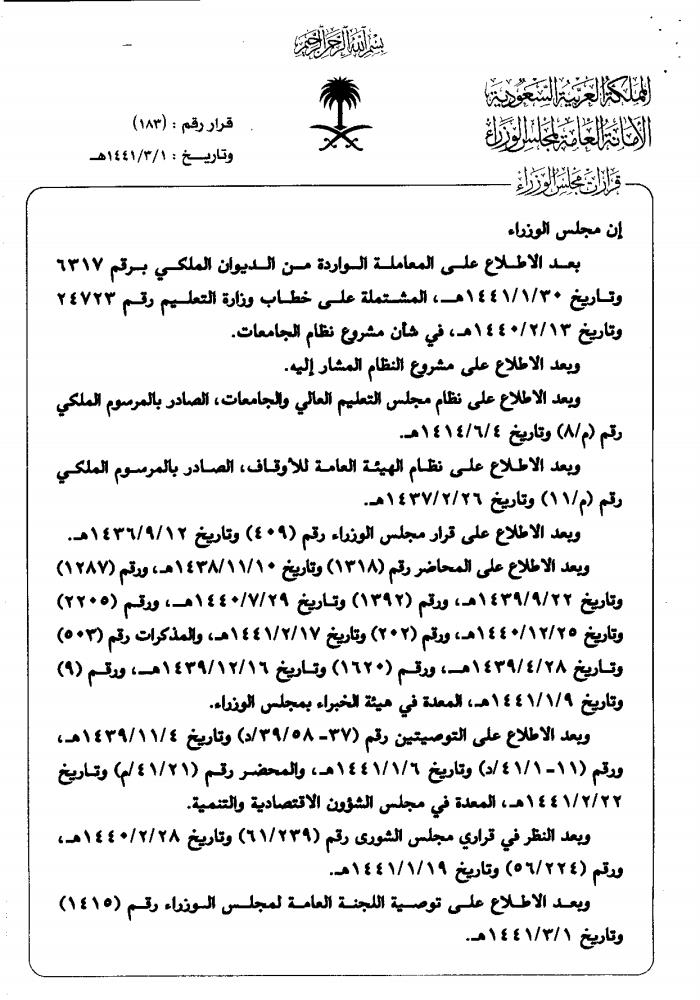 بسم الله الرحمن الرحيم
المملكة العربية السعودية
الأمانة العامة لمجلس الوزراء
قرار رقم : (١٨٣)
وتاريـــخ : ١٤٤١/٣/١هـ
قرارات مجلس الوزراء
إن مجلس الوزراء
بعد الاطلاع على المعاملة الواردة من الديوان الملكي برقم ٦٣١٧
وتاريخ ١٤٤١/١/٣٠هـ، المشتملة على خطاب وزارة التعليم رقم ٢٤٧٢٣
وتاريخ ١٤٤٠/٢/١٣هـ، في شأن مشروع نظام الجامعات.
وبعد الاطلاع على مشروع النظام المشار إليه.
وبعد الاطلاع على نظام مجلس التعليم العالي والجامعات، الصادر بالمرسوم الملكي
رقم (م/٨) وتاريخ ١٤١٤/٦/٤هـ.
وبعد الاطلاع على نظام الهيئة العامة للأوقاف، الصادر بالمرسوم الملكي
رقم (م/١١) وتاريخ ١٤٣٧/٢/٢٦هـ.
وبعد الاطلاع على قرار مجلس الوزراء رقم (٤٠٩) وتاريخ ١٤٣٦/٩/١٢هـ.
وبعد الاطلاع على المحاضر رقم (١٣١٨) وتاريخ ١٤٣٨/١١/١٠هـ، ورقم (١٢٨٧)
وتاريخ ١٤٣٩/٩/٢٢هـ، ورقم (١٣٩٢) وتاريخ ١٤٤٠/٧/٢٩هـ، ورقم (٢٢٠٥)
وتاريخ ١٤٤٠/١٢/٢٥هـ، ورقم (٢٠٢) وتاريخ ١٤٤١/٢/١٧هـ، والمذكرات رقم (٥٠٣)
وتاريخ ١٤٣٩/٤/٢٨هـ، ورقم (١٦٢٠) وتاريخ ١٤٣٩/١٢/١٦هـ، ورقم (٩)
وتاريخ ١٤٤١/١/٩هـ، المعدة في هيئة الخبراء بمجلس الوزراء.
وبعد الاطلاع على التوصيتين رقم (٣٧- ٣٩/٥٨/د) وتاريخ ١٤٣٩/١١/٤هـ،
ورقم (١١-٤١/١/د) وتاريخ ١٤٤١/١/٦هـ، والمحضر رقم (٤١/٢١/م) وتاريخ
١٤٤١/٢/٢٢هـ، المعدة في مجلس الشؤون الاقتصادية والتنمية.
وبعد النظر في قراري مجلس الشورى رقم (٦١/٢٣٩) وتاريخ ١٤٤٠/٢/٢٨هـ،
ورقم (٥٦/٢٢٤) وتاريخ ١٤٤١/١/١٩هـ.
وبعد الاطلاع على توصية اللجنة العامة لمجلس الوزراء رقم (١٤١٥)
وتاريخ ١٤٤١/٣/١هـ.